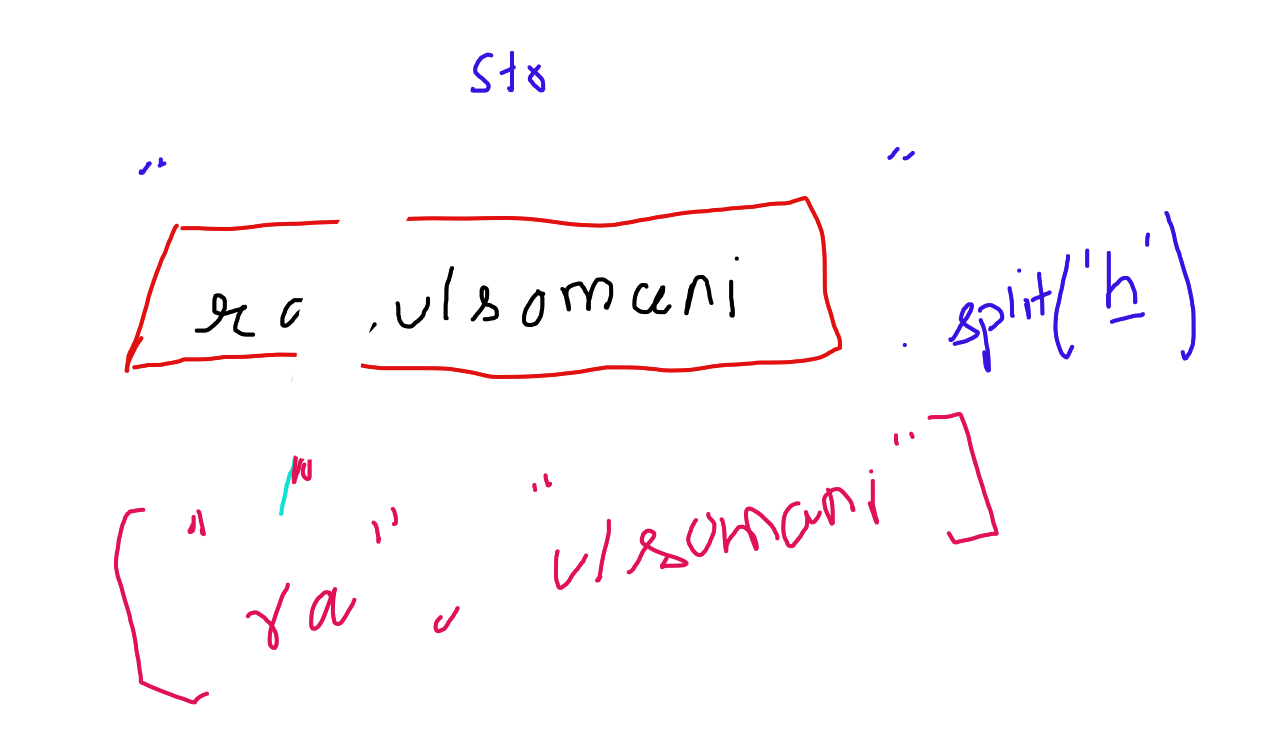 str
" ra ulsomani " . split('h')
[ " ra " , " ulsomani " ]